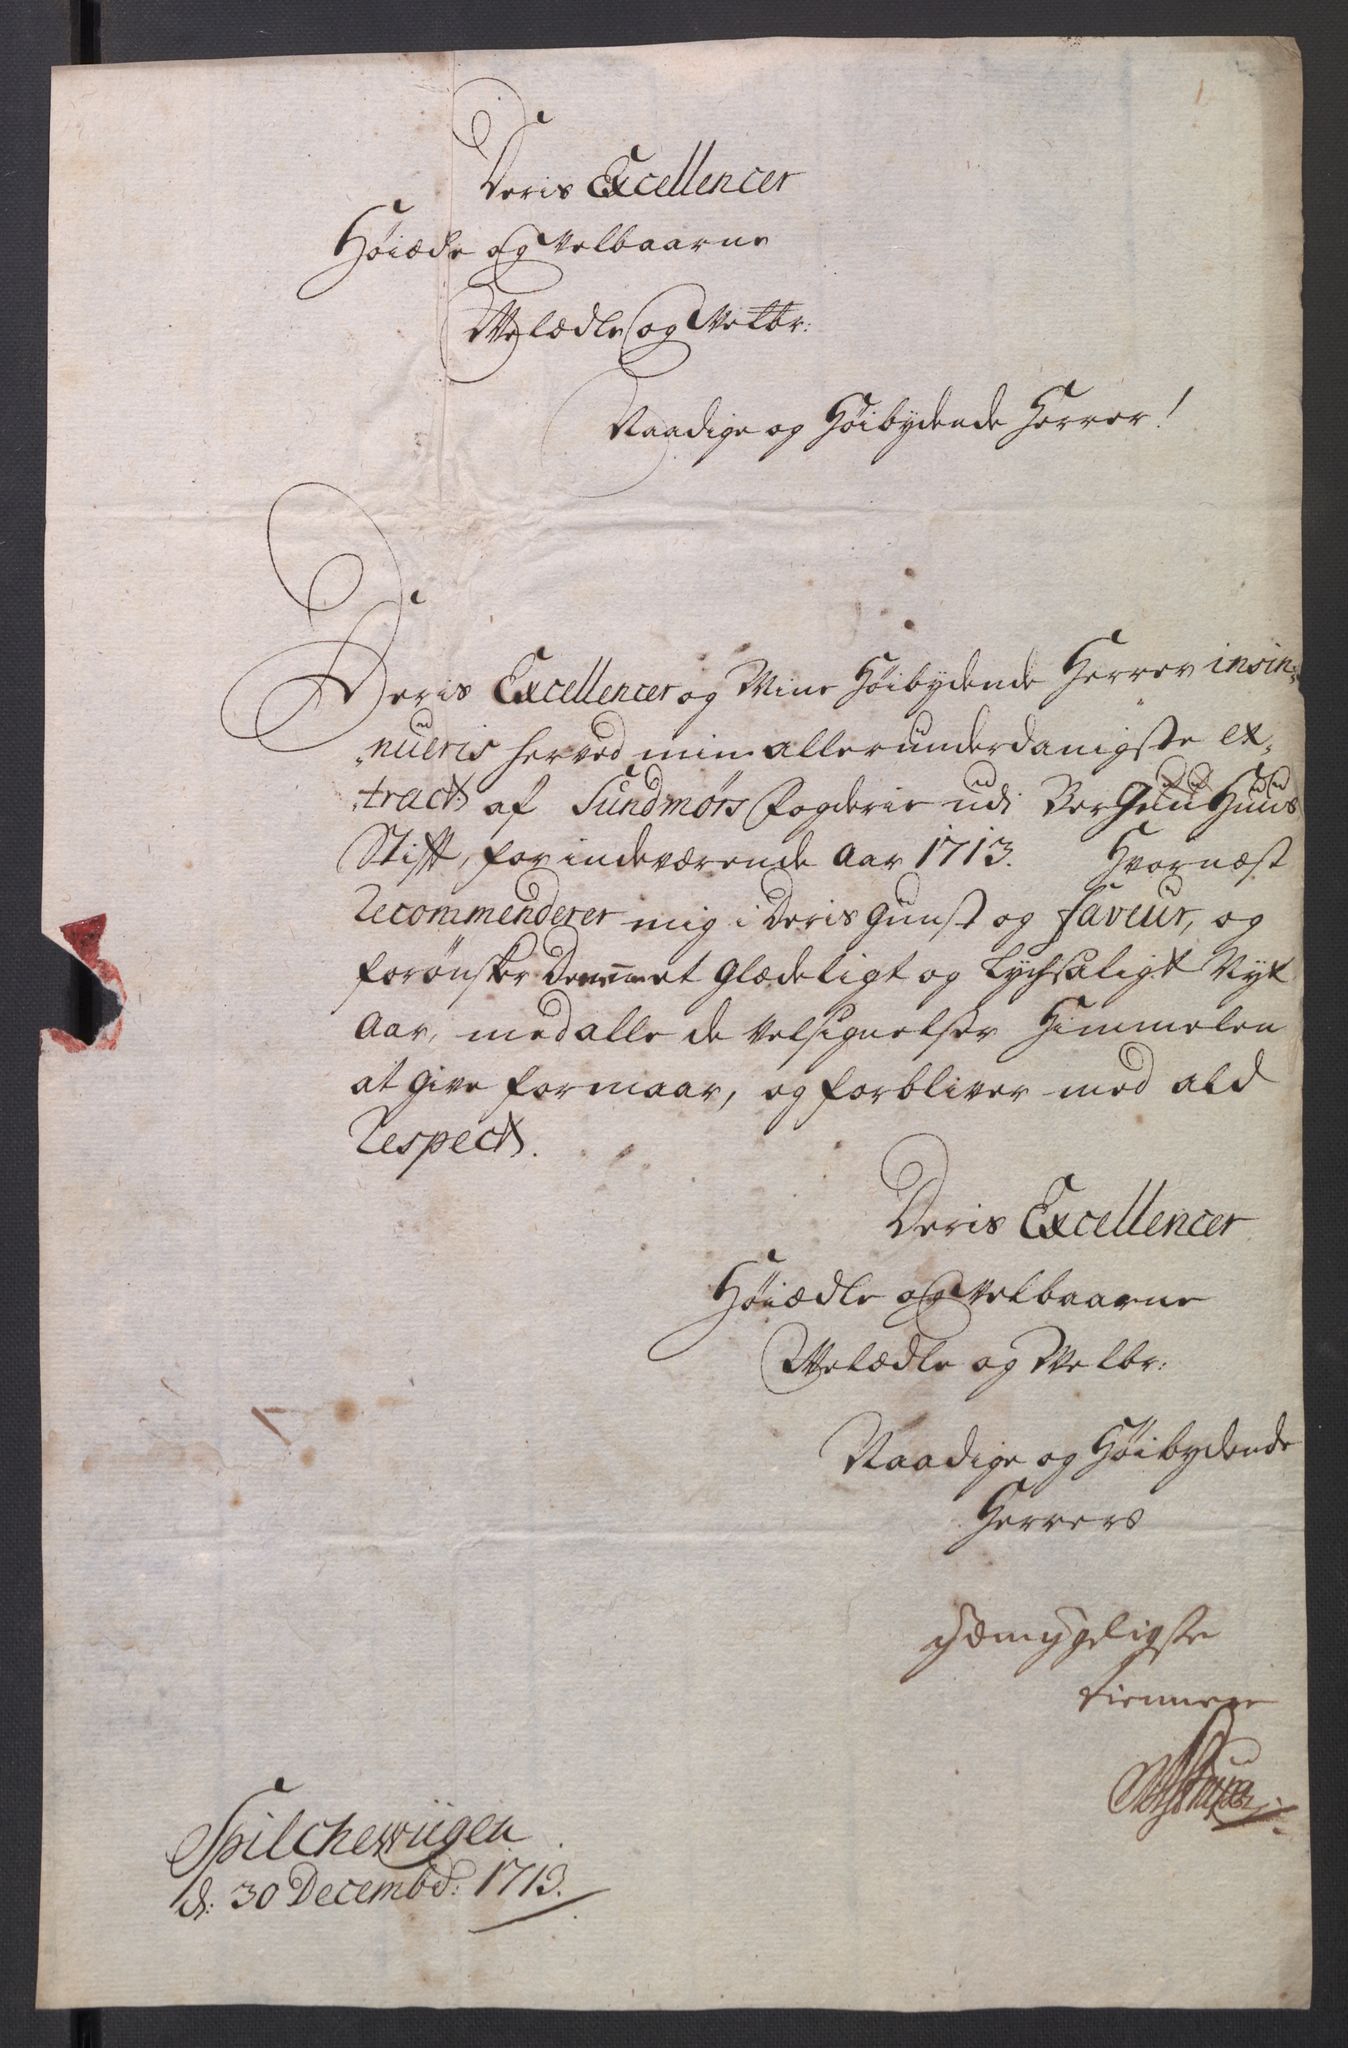 Deris Excellencer
Høiædle og Velbaarne
Velædle og Velbr:
Naadige og Høibydende Herrer!
Deris Excellencer og Mine Høibydende Herrer insin„
„nüeris herved min allerunderdanigste ex„
„tract af Sundmørs Fogderie udi Bergenhuus
Stift, for indeværende Aar 1713. Hvornæst
Recommenderer mig i Deris Gunst og faveur, og
forønsker Dennem et Glædeligt og Lychsaligt Nyt
Aar, med alle de Velsignelser Himmelen
at give formaar, og forbliver med ald
Respect.
Deris Excellencer
Høiædle og Velbaarne
Velædle og Velbr:
Naadige og Høibydende
Herrers
ydmygeligste
tiennere
Spilchewiigen
d: 30 Decembd: 1713.